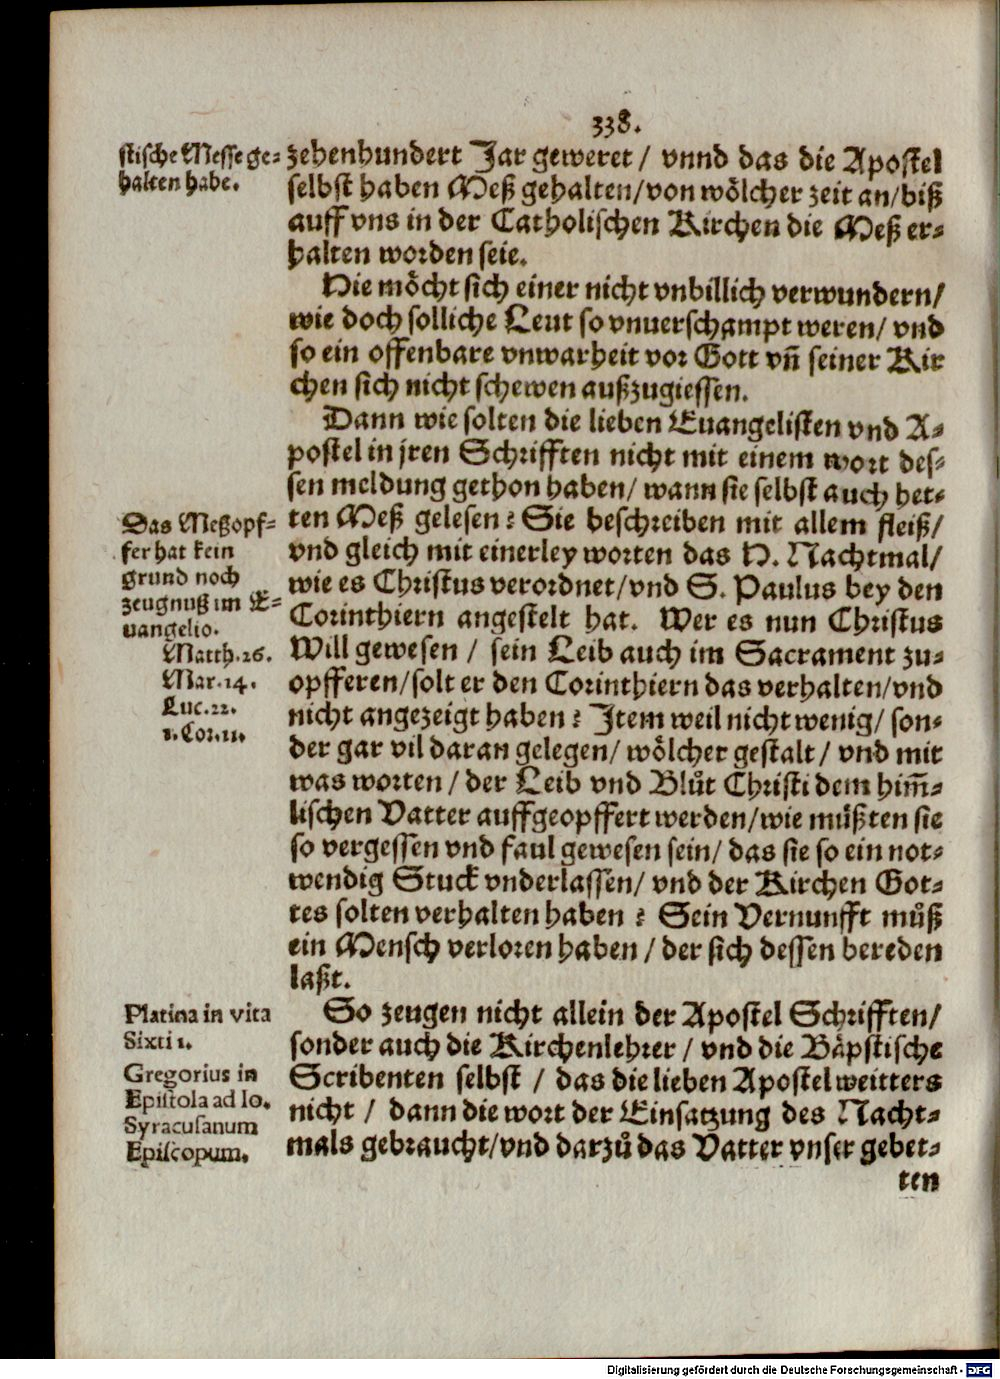 338.
stische Messe ge-
halten habe.
zehenhundert Jar geweret / vnnd das die Apostel
selbst haben Meß gehalten/von wölcher zeit an/biß
auff vns in der Catholischen Kirchen die Meß er-
halten worden seie.
Hie möcht sich einer nicht vnbillich verwundern/
wie doch solliche Leut so vnuerschampt weren/ vnd
so ein offenbare vnwarheit vor Gott vñ seiner Kir
chen sich nicht schewen außzugiessen.
Dann wie solten die lieben Euangelisten vnd A-
postel in jren Schrifften nicht mit einem wort des-
sen meldung gethon haben/ wann sie selbst auch het-
ten Meß gelesen? Sie beschreiben mit allem fleiß/
vnd gleich mit einerley worten das H. Nachtmal/
wie es Christus verordnet/vnd S. Paulus bey den
Corinthiern angestelt hat. Wer es nun Christus
Will gewesen / sein Leib auch im Sacrament zu-
opfferen/solt er den Corinthiern das verhalten/vnd
nicht angezeigt haben? Item weil nicht wenig/ son-
der gar vil daran gelegen/ wölcher gestalt/ vnd mit
was worten / der Leib vnd Blůt Christi dem him̃-
lischen Vatter auffgeopffert werden/wie müßten sie
so vergessen vnd faul gewesen sein/ das sie so ein not-
wendig Stuck vnderlassen/ vnd der Kirchen Got-
tes solten verhalten haben? Sein Vernunfft můß
ein Mensch verloren haben / der sich dessen bereden
laßt.
Das Meßopf-
fer hat kein
grund noch
zeugnuß im E-
uangelio.
Matth.26.
Mar.14.
Luc.22.
1.Cor.11.
So zeugen nicht allein der Apostel Schrifften/
sonder auch die Kirchenlehrer / vnd die Bäpstische
Scribenten selbst / das die lieben Apostel weitters
nicht / dann die wort der Einsatzung des Nacht-
mals gebraucht/vnd darzů das Vatter vnser gebet-
ten
Platina in vita
Sixti 1.
Gregorius in
Epistola ad Io.
Syracusanum
Episcopum.
Digitalisierung gefördert durch die Deutsche Forschungsgemeinschaft - DFG